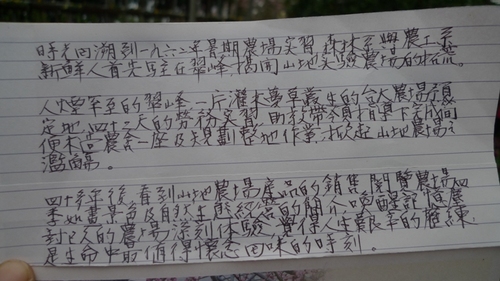 時光回溯到一九六六年暑期農場實習,森林系與農工系
新鮮人首先駐在翠峰,揭開山地實驗農場的序幕。
人煙罕至的翠峰,一片灌木蔓草叢生的台大農場預
定地,四十二天的勞務實習,由教官帶領,
農舍一座及規劃整地作業,掀起山地農場之
濫觴。
四十多年後,看到山地農場產品的銷售,閱覽農場四
季如畫景色及自然生態綜合的簡介,喚醒記憶
的農場深刻體驗,覺得人生艱辛的歷練
是生命中最值得懷念回味的時刻。